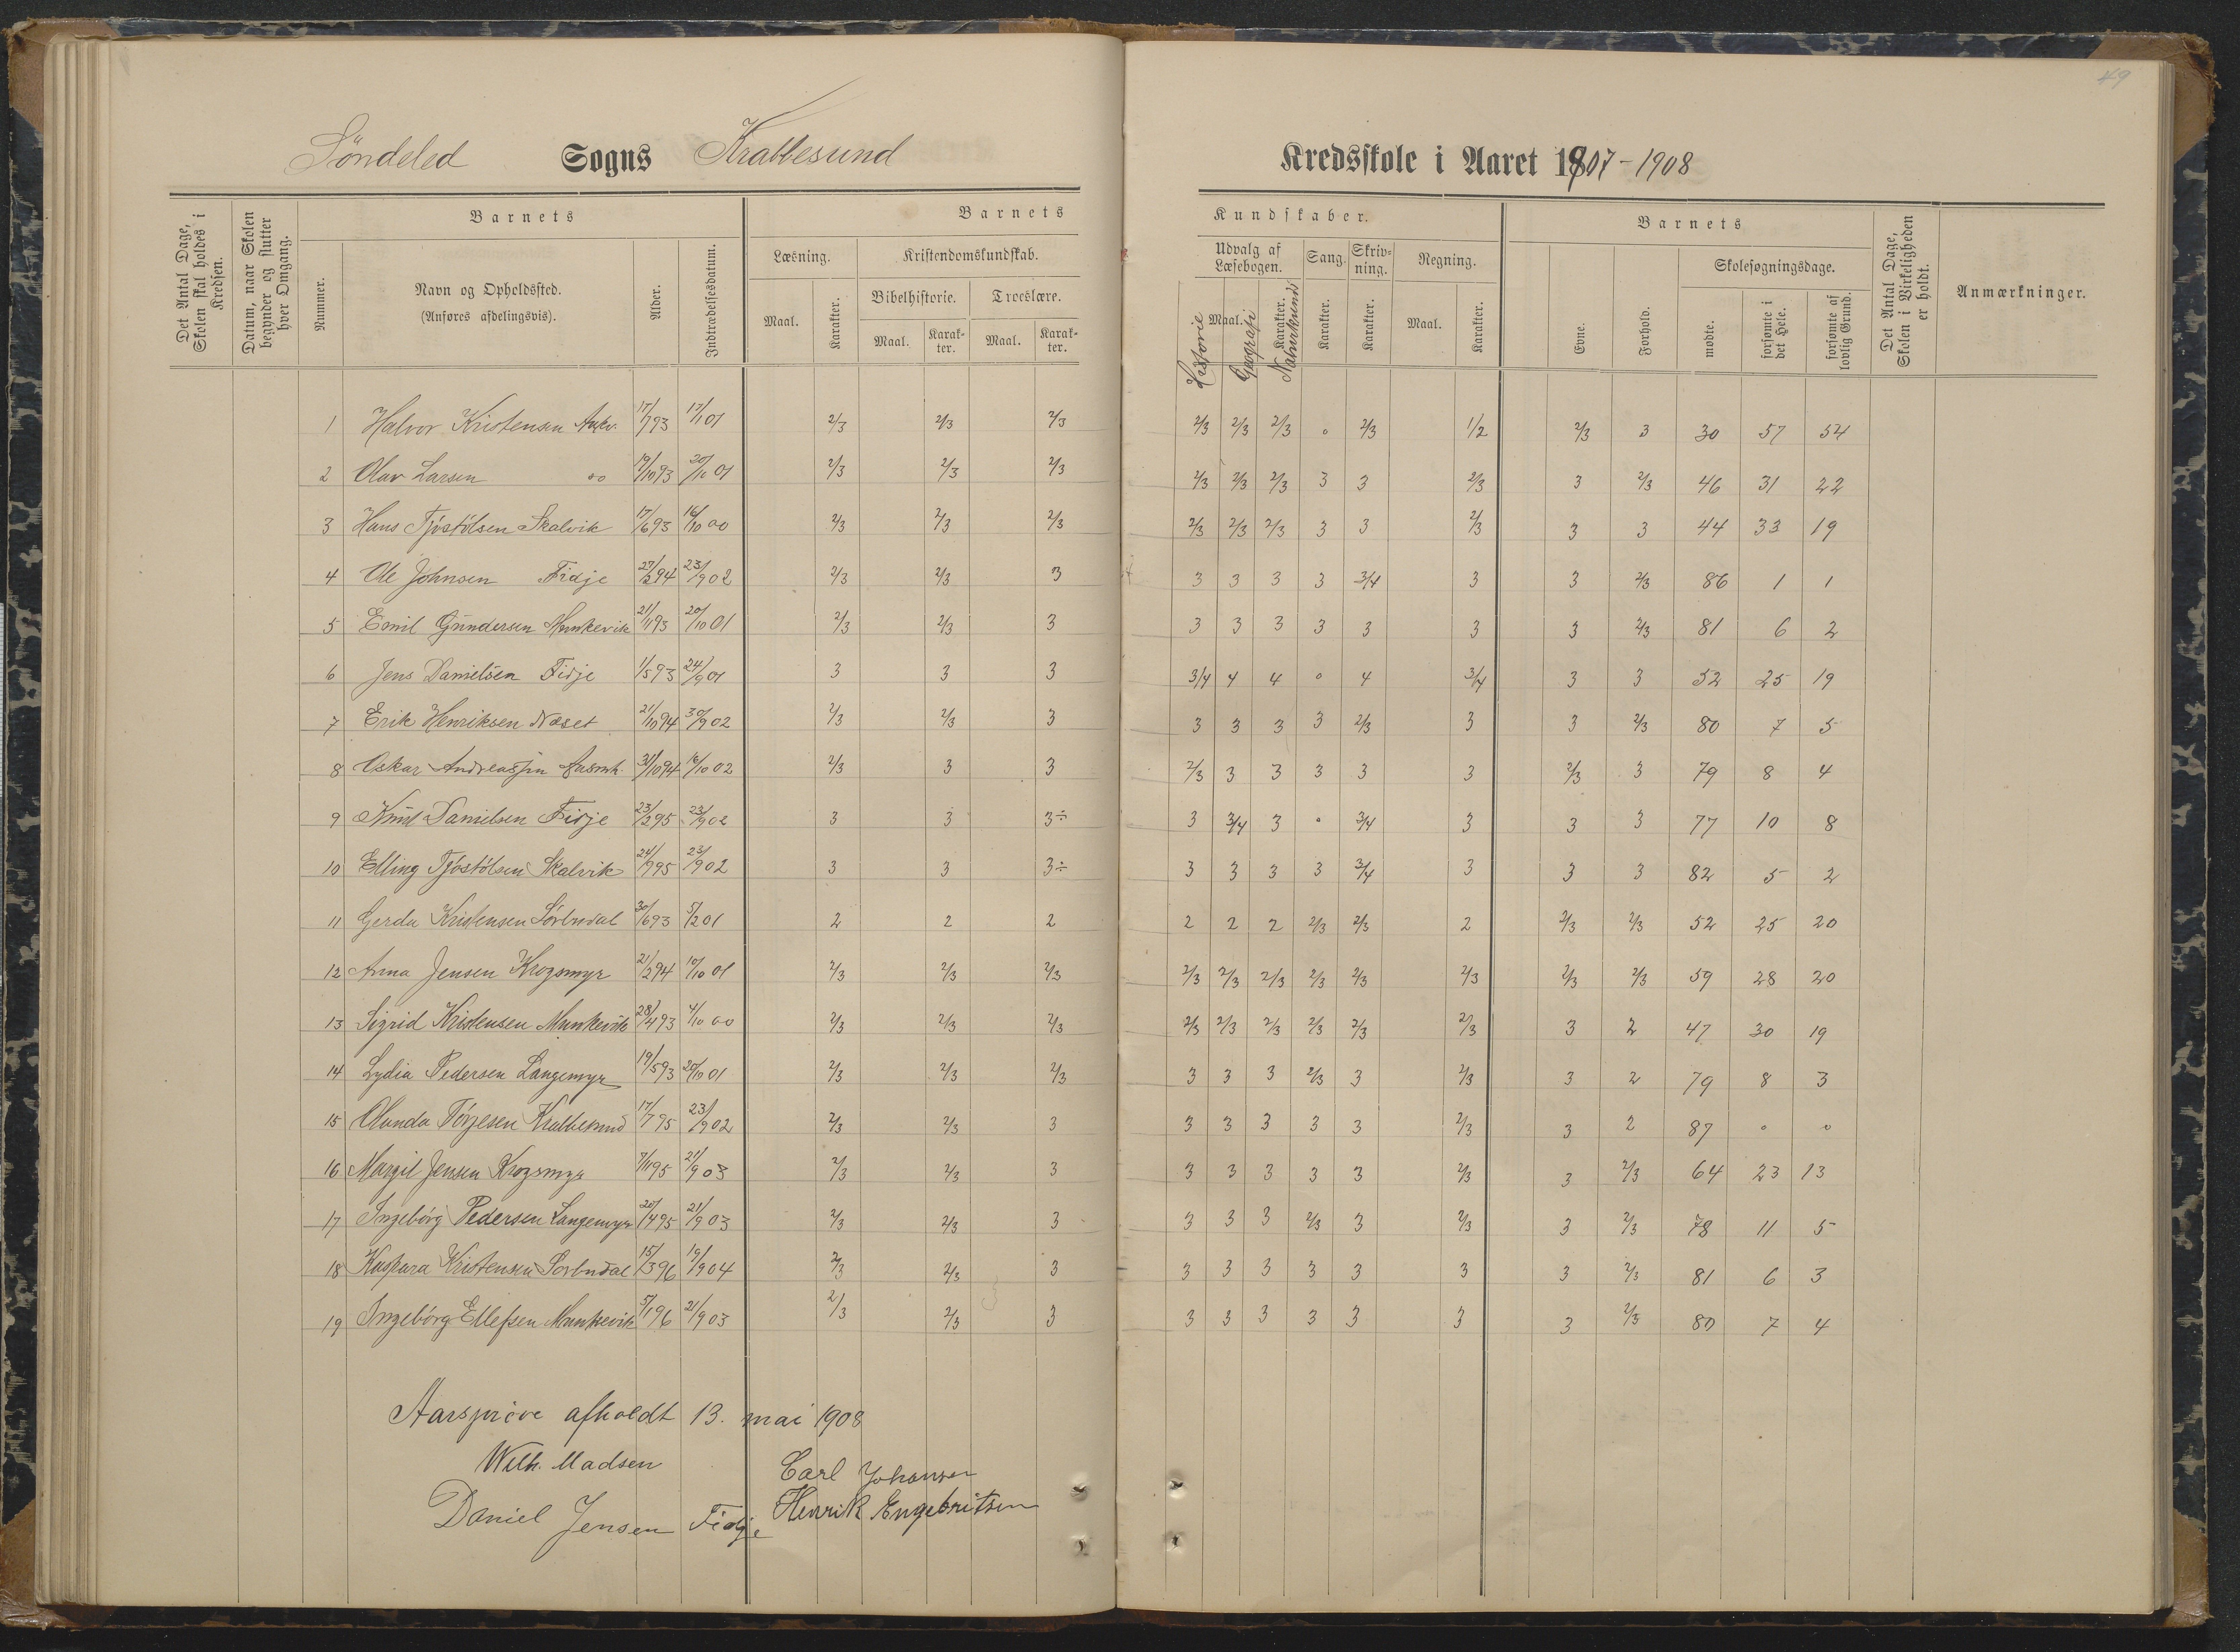 49
Söndeled Sogns Krabbesund Kredsskole i Aaret 1907-1908
Det Antal Dage, Skolen skal holdes i Kredsen.
Datum, naar Skolen begynder og slutter hver Omgang.
Barnets
Nummer.
Navn og Opholdssted.
(Anføres afdelingsvis).
Alder.
Indtrædelsesdatum.
Barnets Kundskaber.
Læsning. Maal. Karakter.
Kristendomskundskab.
Bibelhistorie. Maal. Karakter.
Troeslære. Maal. Karakter.
Udvalg af Læsebogen. Maal. Karakter.
Historie Geografi Naturkundsk
Sang. Karakter.
Skrivning. Karakter.
Regning. Maal. Karakter.
Barnets
Evne. Forhold.
Skolesøgningsdage.
mødte. forsømte i det Hele. forsømte af lovlig Grund.
Det Antal Dage, Skolen i Virkeligheden er holdt.
Anmærkninger.
1 Halvor Kristensen 17/7 93 17/1 01 2/3 2/3 2/3 2/3 2/3 2/3 0 2/3 1/2 2/3 3 30 57 54
2 Olav Larsen 19/10 93 20/10 01 2/3 2/3 2/3 2/3 2/3 2/3 3 3 2/3 3 2/3 46 31 22
3 Hans Tjöstölsen Skalvik 17/6 93 16/10 00 2/3 2/3 2/3 2/3 2/3 2/3 3 3 2/3 3 3 44 33 19
4 Ole Johnsen Fidje 27/2 94 23/9 02 2/3 2/3 3 3 3 3 3 3/4 3 3 2/3 86 1 1
5 Emil Gundersen Munkevik 21/11 93 20/10 01 2/3 2/3 3 3 3 3 3 3 3 3 2/3 81 6 2
6 Jens Danielsen Fidje 1/5 93 24/9 01 3 3 3 3/4 4 4 0 4 3/4 3 3 52 25 19
7 Erik Henriksen Næset 21/10 94 30/9 02 2/3 2/3 3 3 3 3 3 2/3 3 3 2/3 80 7 5
8 Oskar Andreassen 31/10 94 16/10 02 2/3 3 3 2/3 3 3 3 3 3 2/3 3 79 8 4
9 Knut Danielsen Fidje 23/2 95 23/9 02 3 3 3÷ 3 3/4 3 0 3/4 3 3 3 77 10 8
10 Elling Tjöstölsen Skalvik 24/9 95 23/9 02 3 3 3÷ 3 3 3 3 3/4 3 3 3 82 5 2
11 Gerda Kristensen Sörbndal 30/6 93 5/2 01 2 2 2 2 2 2 2/3 2/3 2 2/3 2/3 52 25 20
12 Anna Jensen Krogsmyr 21/2 94 10/10 01 2/3 2/3 2/3 2/3 2/3 2/3 2/3 2/3 2/3 2/3 2/3 59 28 20
13 Sigrid Kristensen Munkevik 28/4 93 4/10 00 2/3 2/3 2/3 2/3 2/3 2/3 2/3 2/3 2/3 3 2 47 30 19
14 Lydia Pedersen Langemyr 19/5 93 25/10 01 2/3 2/3 2/3 3 3 3 2/3 3 2/3 3 2 79 8 3
15 Olunda Törjesen Krabbesund 17/7 95 23/9 02 2/3 2/3 3 3 3 3 3 3 2/3 3 2 87 0 0
16 Margit Jensen Krogsmyr 7/11 95 21/9 03 2/3 2/3 3 3 3 3 3 3 2/3 3 2/3 64 23 13
17 Ingebörg Pedersen Langemyr 20/4 95 21/9 03 2/3 2/3 3 3 3 3 2/3 3 2/3 3 2/3 78 11 5
18 Kaspara Kristensen Sörbndal 15/3 96 19/9 04 2/3 2/3 3 3 3 3 3 3 3 3 2/3 81 6 3
19 Ingebörg Ellefsen Munkevik 5/1 96 21/9 03 2/3 2/3 3 3 3 3 3 3 3 3 2/3 80 7 4
Aarspröve afholdt 13. mai 1908
Wilh. Madsen Carl Johansen
Daniel Jensen Fidje Henrik Engebritsen